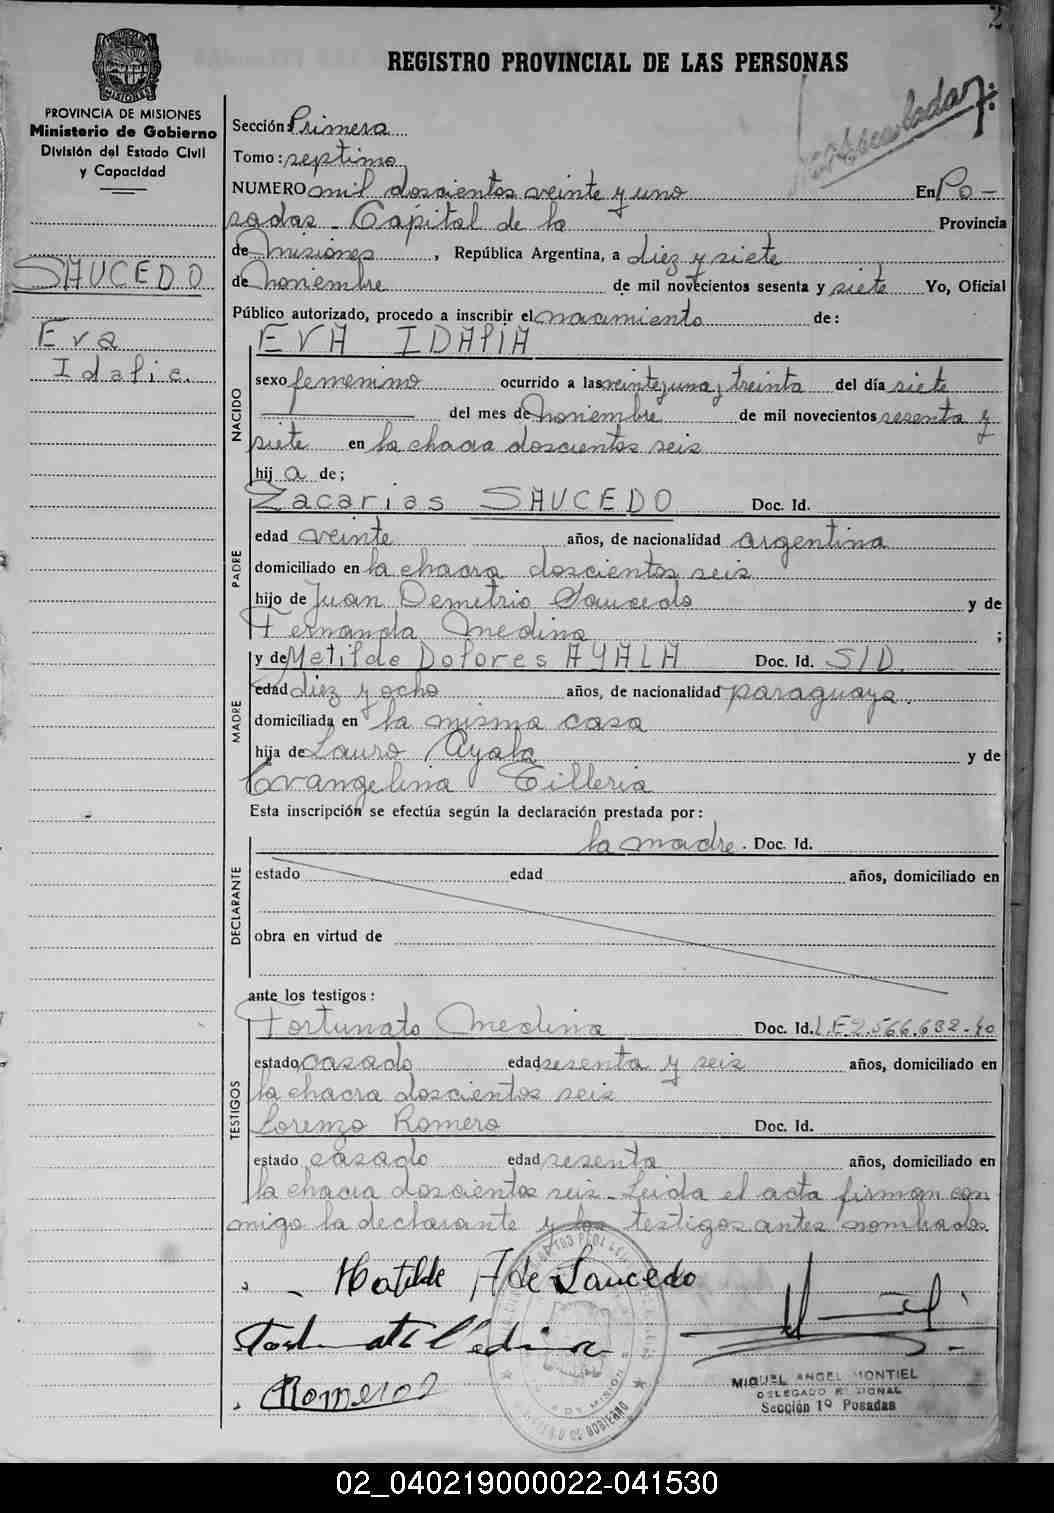 2
REGISTRO PROVINCIAL DE LAS PERSONAS
MISIONES
PROVINCIA DE MISIONES
Ministerio de Gobierno
División del Estado Civil
y Capacidad
SAUCEDO
Eva
Idalia.
Sección: Primera
Tomo: septimo
NUMERO mil doscientos veinte y uno En Po-
sadas - Capital de la Provincia
de Misiones, República Argentina, a diez y siete
de Noviembre de mil novecientos sesenta y siete Yo, Oficial
Público autorizado, procedo a inscribir el nacimiento de:
EVA IDALIA
NACIDO
sexo femenino ocurrido a las veinte y una y treinta del día siete
del mes de Noviembre de mil novecientos sesenta y
siete en la chacra doscientos seis
hij a de;
PADRE
Zacarias SAUCEDO Doc. Id.
edad veinte años, de nacionalidad argentina
domiciliado en la chacra doscientos seis
hijo de Juan Demetrio Saucedo y de
Fernanda Medina ;
MADRE
y de Matilde Dolores AYALA Doc. Id. S/D.
edad diez y ocho años, de nacionalidad paraguaya.
domiciliada en la misma casa
hija de Lauro Ayala y de
Evangelina Tilleria
Esta inscripción se efectúa según la declaración prestada por:
la madre. Doc. Id.
DECLARANTE
estado edad años, domiciliado en
obra en virtud de
ante los testigos:
TESTIGOS
Fortunato Medina Doc. Id. L.E 2.566.632-40
estado casado edad sesenta y seis años, domiciliado en
la chacra doscientos seis
Lorenzo Romero Doc. Id.
estado casado edad sesenta años, domiciliado en
la chacra doscientos seis - Leida el acta firman con
migo la declarante y los testigos antes nombrados.
Matilde A de Saucedo
Fortunato Medina
Romero L
MIGUEL ANGEL MONTIEL
DELEGADO REGIONAL
Sección 1º Posadas
02_040219000022-041530